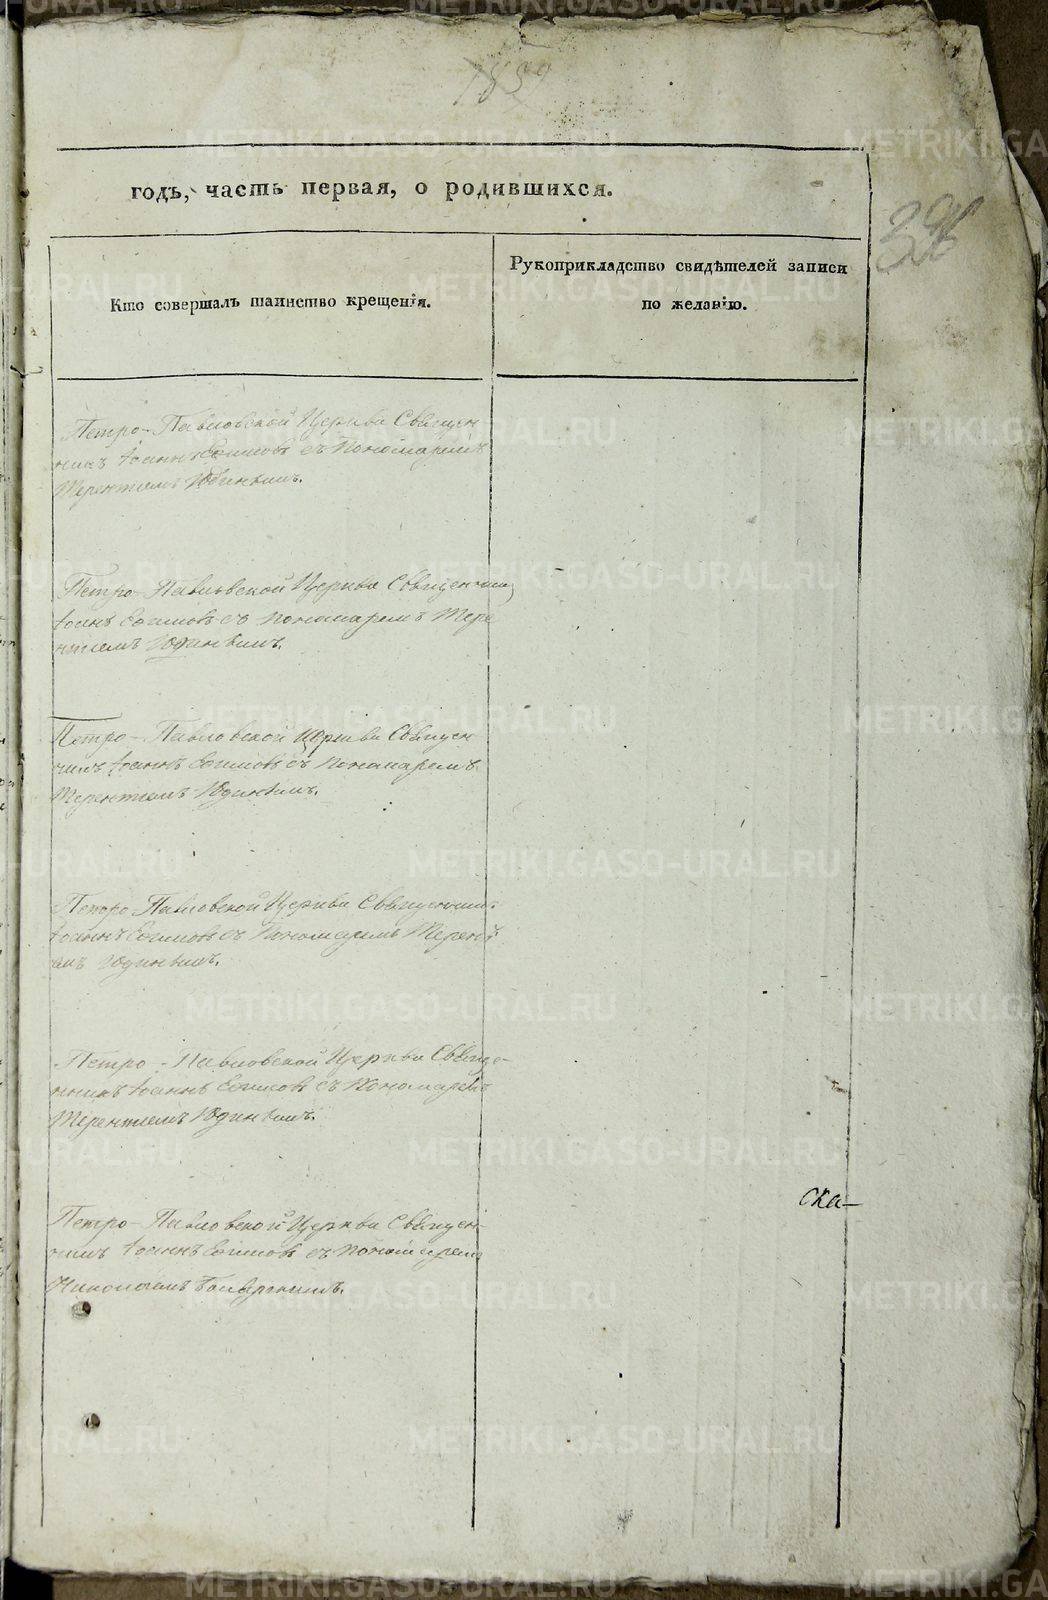 1839
годъ, часть первая, о родившихся.
396
Кто совершалъ таинство крещенія.
Рукоприкладство свидѣтелей записи
по желанію.
Петро-Павловской Церкви Священ
никъ Іоаннъ Ефимовъ съ Пономаремъ
Терентіемъ Юдинымъ.
Петро-Павловской Церкви Священник
Іоанъ Ефимовъ съ Пономаремъ Тере
нтіемъ Юдинымъ.
Петро-Павловской Церкви Священ
никъ Іоаннъ Ефимовъ съ Пономаремъ
Терентіемъ Юдинымъ.
Петро Павловской Церкви Священник
Іоаннъ Ефимовъ съ Пономаремъ Терентi
емъ Юдинымъ.
Петро-Павловской Церкви Свяще-
нникъ Іоаннъ Ефимовъ съ Пономаремъ
Терентіемъ Юдинымъ.
ска-
Петро-Павловской Церкви Священ-
никъ Іоаннъ Ефимовъ съ Пономаремъ
Николаемъ
METRIKI.GASO-URAL.RU